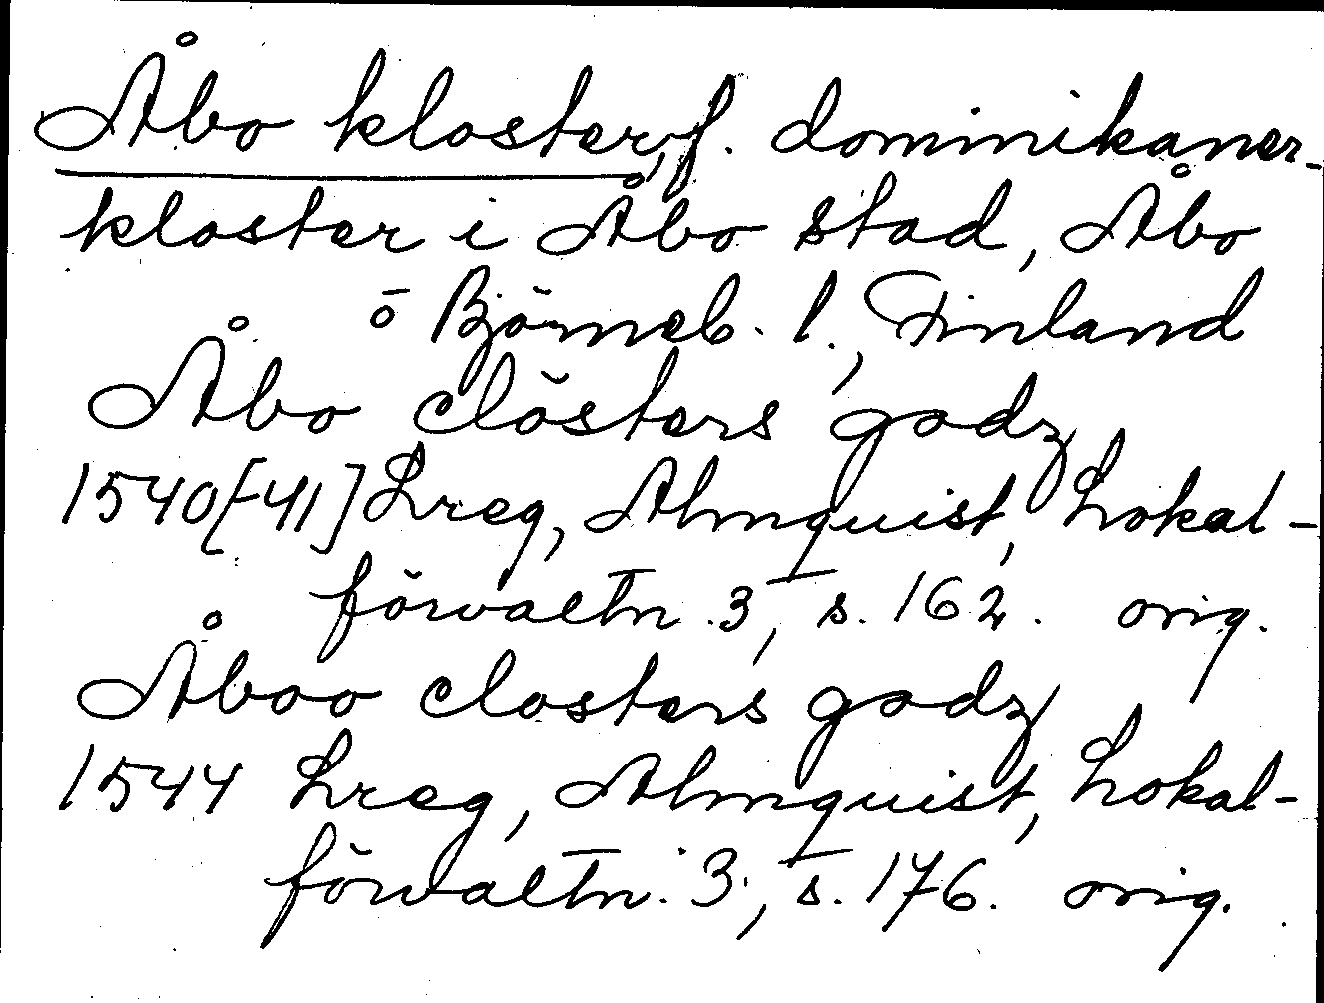 Åbo kloster, f. dominikaner-
kloster i Åbo stad, Åbo
o Björneb. l., Finland
Åbo clösters godz
1540[-41] Lreg, Almquist, Lokal-
förvaltn. 3, s. 162. orig.
Åboo closters godz
1544 Lreg, Almquist, Lokal-
förvaltn. 3, s. 176. orig.